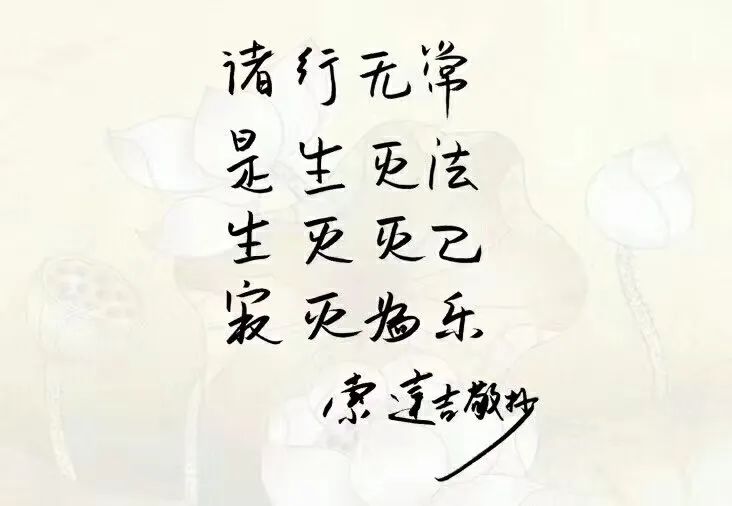 诸行无常
是生灭法
生灭灭已
寂灭为乐
索達吉敬抄